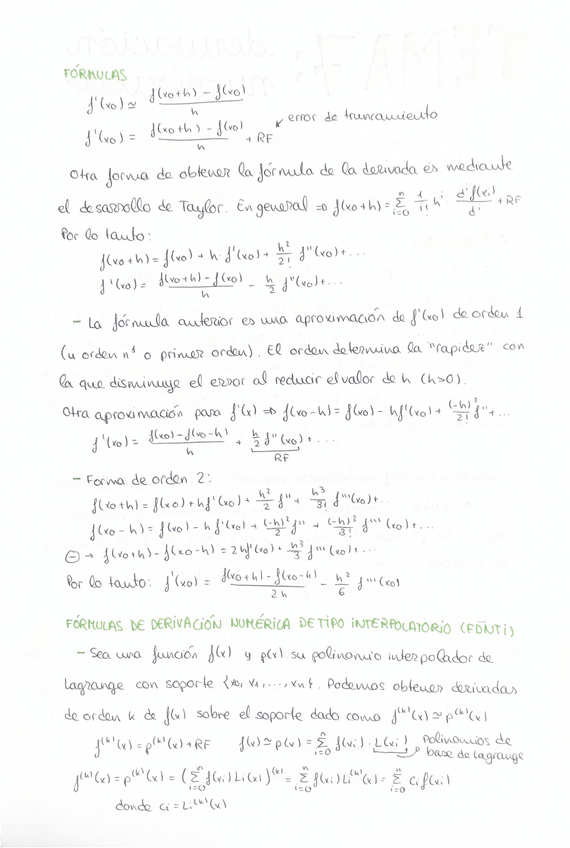 FÓRMULAS
f'(x0) ≃ (f(x0+h) - f(x0)) / h
f'(x0) = (f(x0+h) - f(x0)) / h + RF ↙ error de truncamiento
Otra forma de obtener la fórmula de la derivada es mediante
el desarrollo de Taylor. En general ⇒ f(x0+h) = Σ_{i=0}^{n} 1/i! h^i · d^i f(xi)/d^i + RF
Por lo tanto:
f(x0+h) = f(x0) + h · f'(x0) + h²/2! f''(x0) + ...
f'(x0) = (f(x0+h) - f(x0)) / h - h/2 f''(x0) + ...
- La fórmula anterior es una aproximación de f'(x0) de orden 1
(u orden n¹ o primer orden). El orden determina la "rapidez" con
la que disminuye el error al reducir el valor de h (h>0).
Otra aproximación para f'(x) ⇒ f(x0-h) = f(x0) - hf'(x0) + (-h)²/2! f'' + ...
f'(x0) = (f(x0) - f(x0-h)) / h + h/2 f''(x0) + ...
RF
- Forma de orden 2:
f(x0+h) = f(x0) + hf'(x0) + h²/2 f'' + h³/3! f'''(x0) + ...
f(x0-h) = f(x0) - hf'(x0) + (-h)²/2 f'' + (-h)³/3! f'''(x0) + ...
⊖ → f(x0+h) - f(x0-h) = 2hf'(x0) + h³/3 f'''(x0) + ...
Por lo tanto: f'(x0) = (f(x0+h) - f(x0-h)) / 2h - h²/6 f'''(x0)
FÓRMULAS DE DERIVACIÓN NUMÉRICA DE TIPO INTERPOLATORIO (FDNTI)
- Sea una función f(x) y p(x) su polinomio interpolador de
Lagrange con soporte {x0, x1, ..., xn}. Podemos obtener derivadas
de orden k de f(x) sobre el soporte dado como f^(k)(x) ≃ p^(k)(x)
f^(k)(x) = p^(k)(x) + RF f(x) ≃ p(x) = Σ_{i=0}^{n} f(xi) · L(xi) → Polinomios de
base de Lagrange
f^(k)(x) = p^(k)(x) = (Σ_{i=0}^{n} f(xi) Li(x))^(k) = Σ_{i=0}^{n} f(xi) Li^(k)(x) = Σ_{i=0}^{n} ci f(xi)
donde ci = Li^(k)(x)